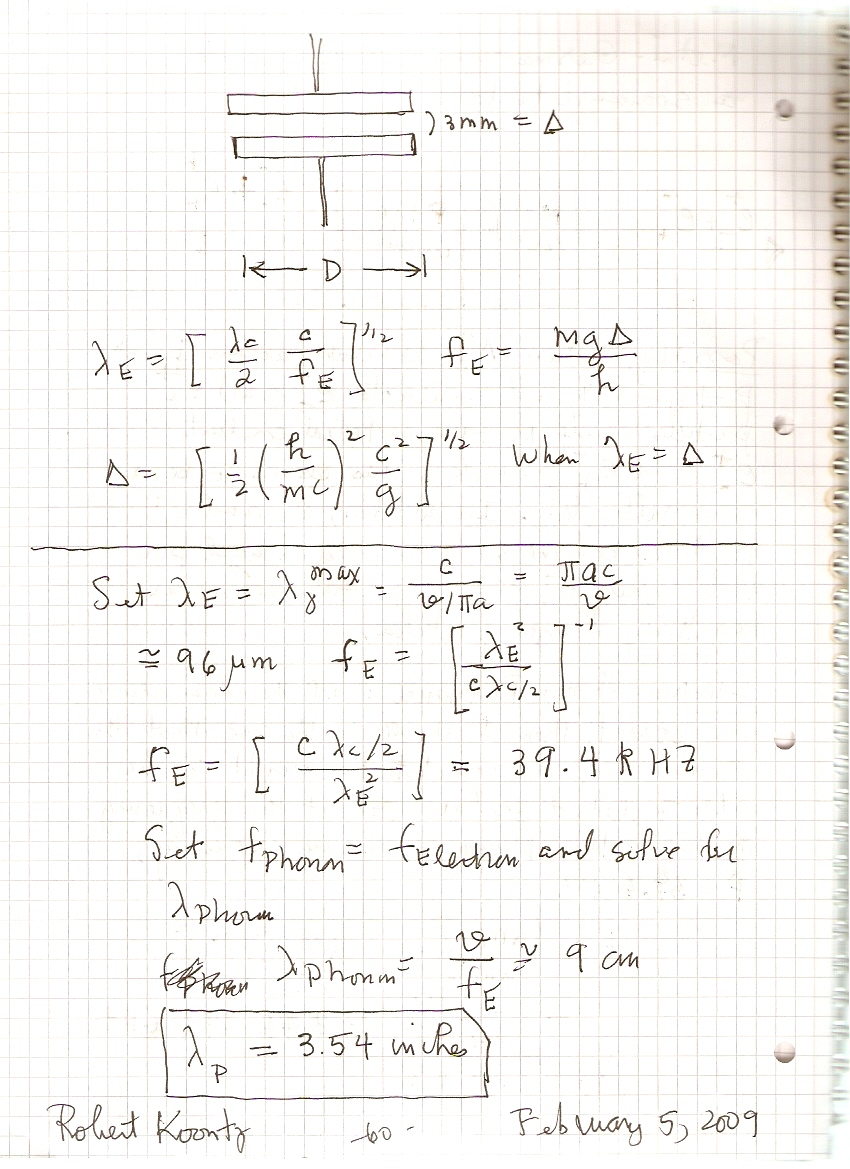 ) 3mm = Δ
|← D →|
λE = [ λc/2 c/fE ]^1/2 fE = mgΔ/h
Δ = [ 1/2 (h/mc)^2 c^2/g ]^1/2 when λE = Δ
Set λE = λγ^max = c/(v/πa) = πac/v
≅ 96 μm fE = [ λE^2/(c λc/2) ]^-1
fE = [ (c λc/2)/λE^2 ] = 39.4 kHZ
Set fPhonon = fElectron and solve for
λPhonon
λPhonon = v/fE ≅ 9 cm
λp = 3.54 inches
Robert Koontz -60- February 5, 2009